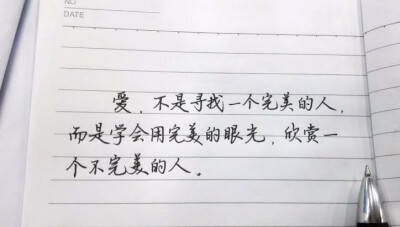 NO
DATE
爱，不是寻找一个完美的人，
而是学会用完美的眼光，欣赏一
个不完美的人。